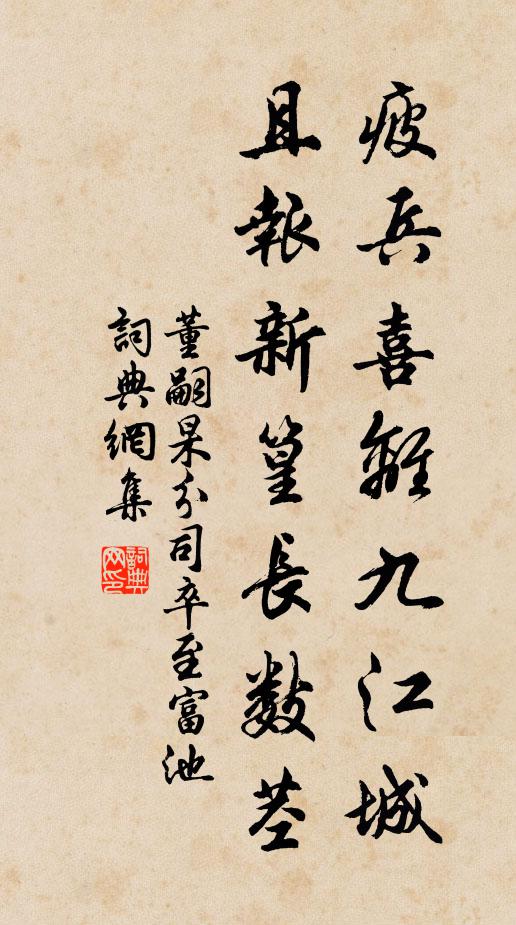 疲兵喜離九江城
且報新篁長數莖
董嗣杲分司卒至富池
詞典網集
詞典網印